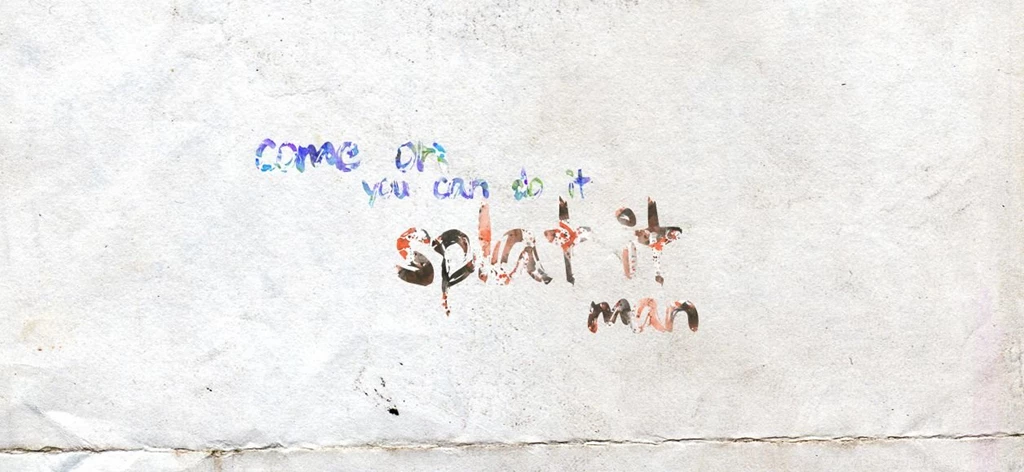 come on
you can do it
splat it
man